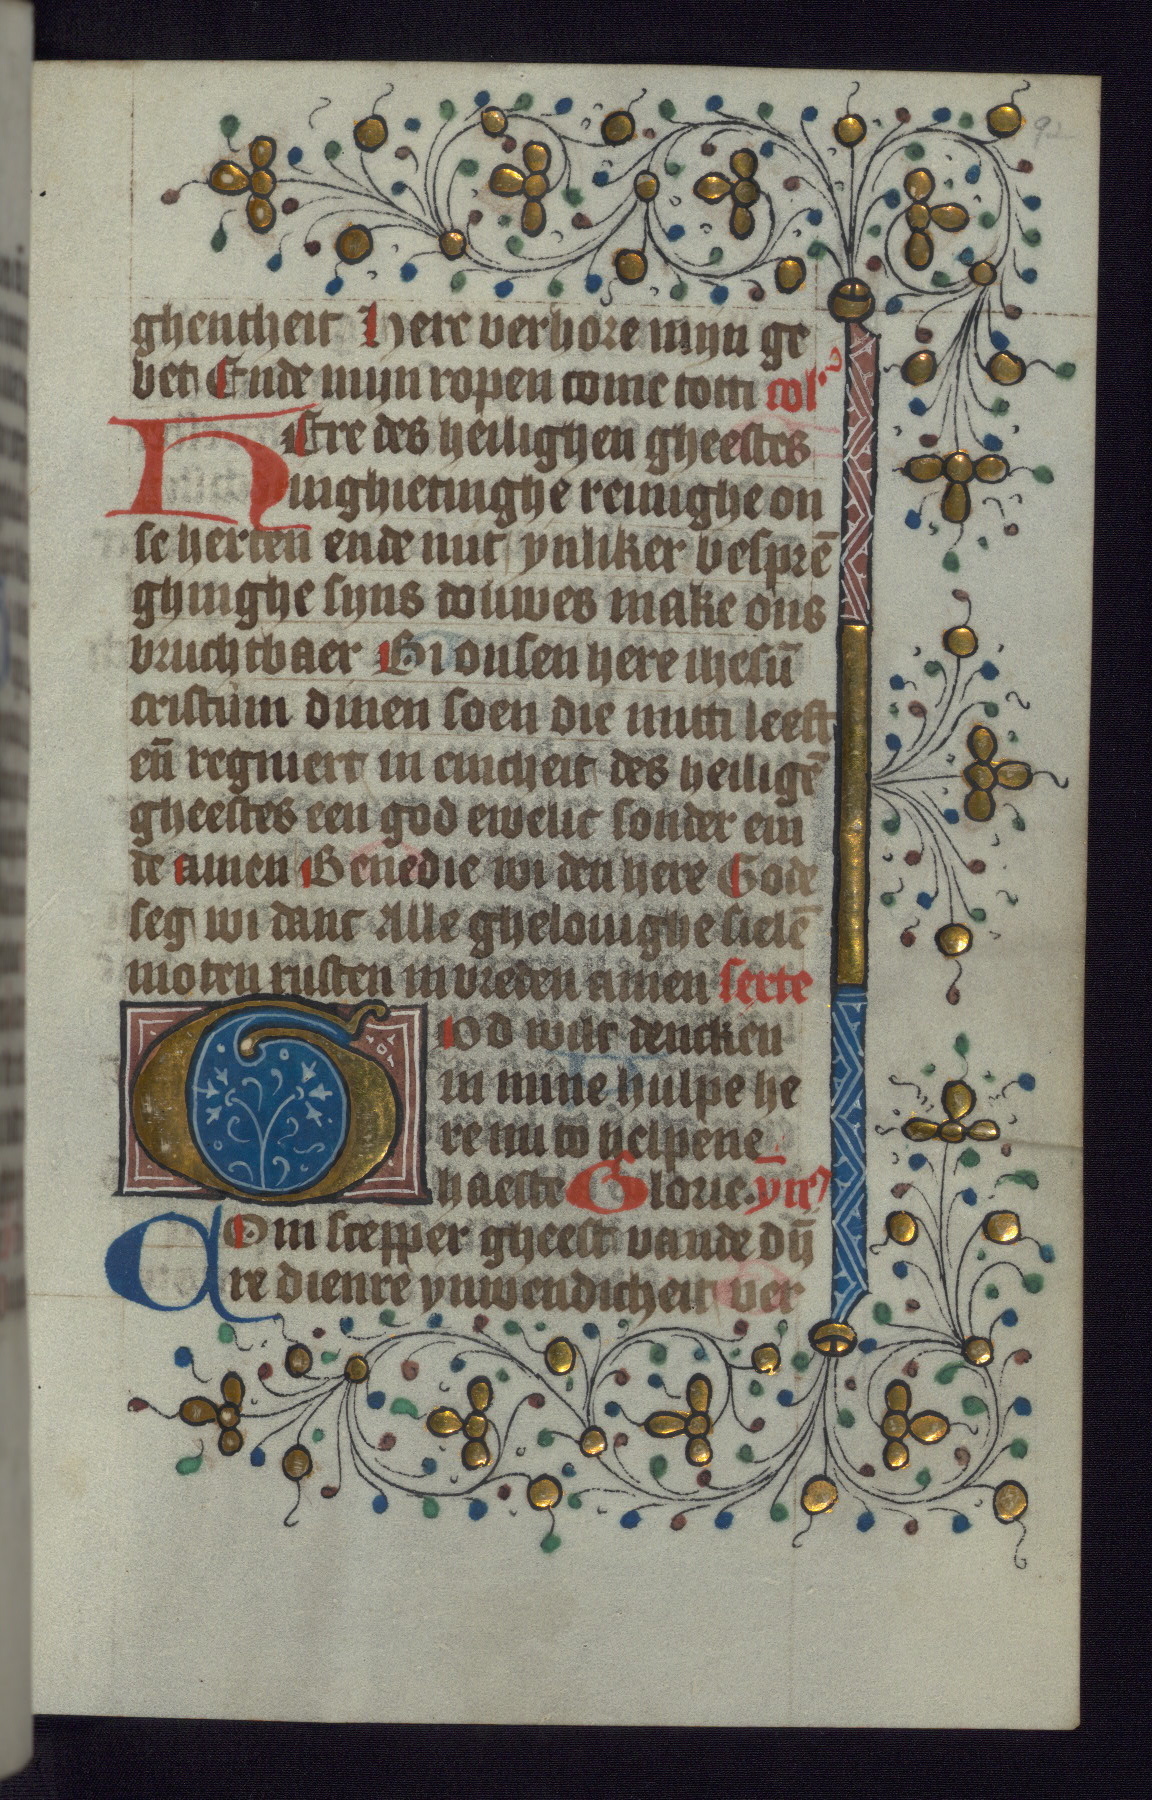 ghentheit Here verhore myn ge
bet Ende myn ropen come totti col'
HEre des heilighen gheestes
inghietinghe reinighe on
se herten ende mit ynliker besprē
ghinghe syns douwes make ons
vruchtbaer Bi onsen here ihesū
cristum dinen soen die mitti leeft
eñ regniert in eincheit des heiligē
gheestes een god ewelic sonder ein
de amen Benedie wi den here Gode
seg wi danc Alle ghelouighe sielē
moten rusten in vreden amen serte
GOd wilt dencken
in mine hulpe he
re nu to helpene
haeste Glorie. ym9
COm scepper gheest vande dȳ
re dienre ynwendicheit ver
92